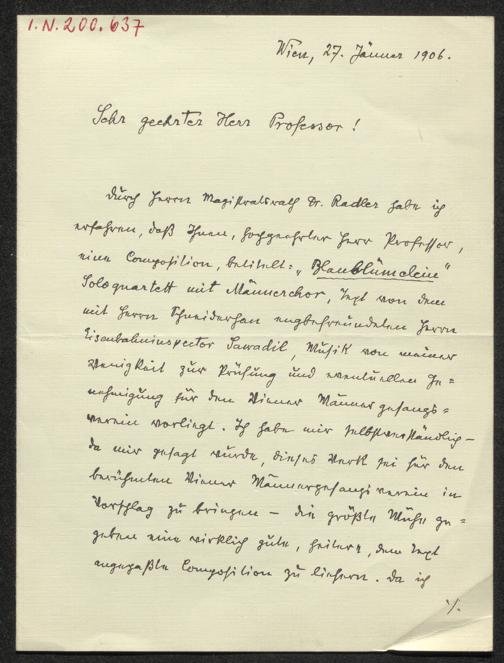 I.N. 200.637
Wien, 27. Jänner 1906.
Sehr geehrter Herr Professor!
Durch Herrn Magistratsrath Dr. Radler habe ich
erfahren, daß Ihnen, hochgeehrter Herr Professor,
eine Composition, betitelt: „Blaublümelein“
Soloquartett mit Männerchor, Text von dem
mit Herrn Schneiderhan engbefreundeten Herrn
Eisenbahninspector Zawadil, Musik von meiner
Wenigkeit zur Prüfung und eventuellen Ge=
nehmigung für den Wiener Männergesangs=
verein vorliegt. Ich habe mir selbstverständlich –
da mir gesagt wurde, dieses Werk sei für den
berühmten Wiener Männergesangsverein in
Vorschlag zu bringen – die größte Mühe ge=
geben eine wirklich gute, heitere, dem Text
angepaßte Composition zu liefern. Da ich
./.